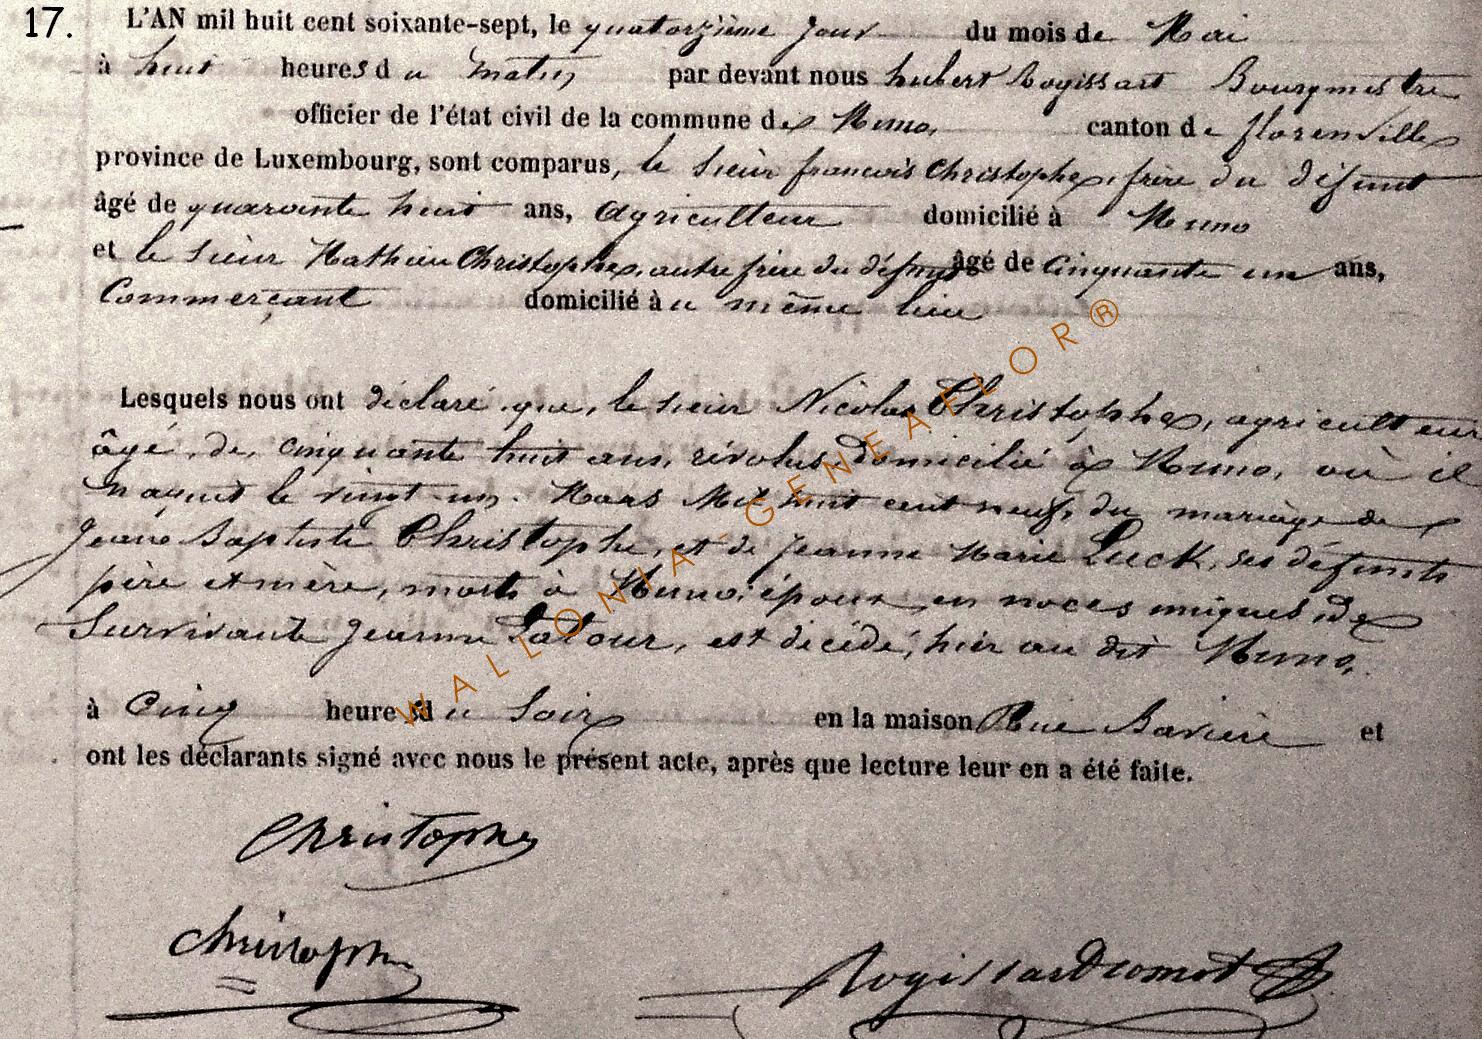 17. L'AN mil huit cent soixante-sept, le quatorzième jour du mois de Mai
à huit heures du matin, par devant nous hubert Rogissart Bourgmestre
officier de l'état civil de la commune de Muno, canton de florenville
province de Luxembourg, sont comparus, le sieur francois Christophe, frère du défunt
âgé de quarante huit ans, Agriculteur domicilié à Muno
et le sieur Mathieu Christophe, autre frère du défunt âgé de Cinquante un ans,
Commerçant domicilié à u même lieu
Lesquels nous ont déclaré que, le sieur Nicolas Christophe, agriculteur
âgé, de, cinquante huit ans, révolus domicilié à Muno, où il
naquit le vingt un Mars Mil huit cent neuf, du mariage de
Jean Baptiste Christophe, et de Jeanne Marie Luck, ses défunts
père et mère, morts à Muno, époux en noces uniques de
Survivante Jeanne Latour, est décédé, hier au dit Muno,
à Cinq heures du Soir en la maison Rue Bavière et
ont les déclarants signé avec nous le présent acte, après que lecture leur en a été faite.
Christophe
Christophe
Rogissart
WALLONIA-GENEAFLOR®